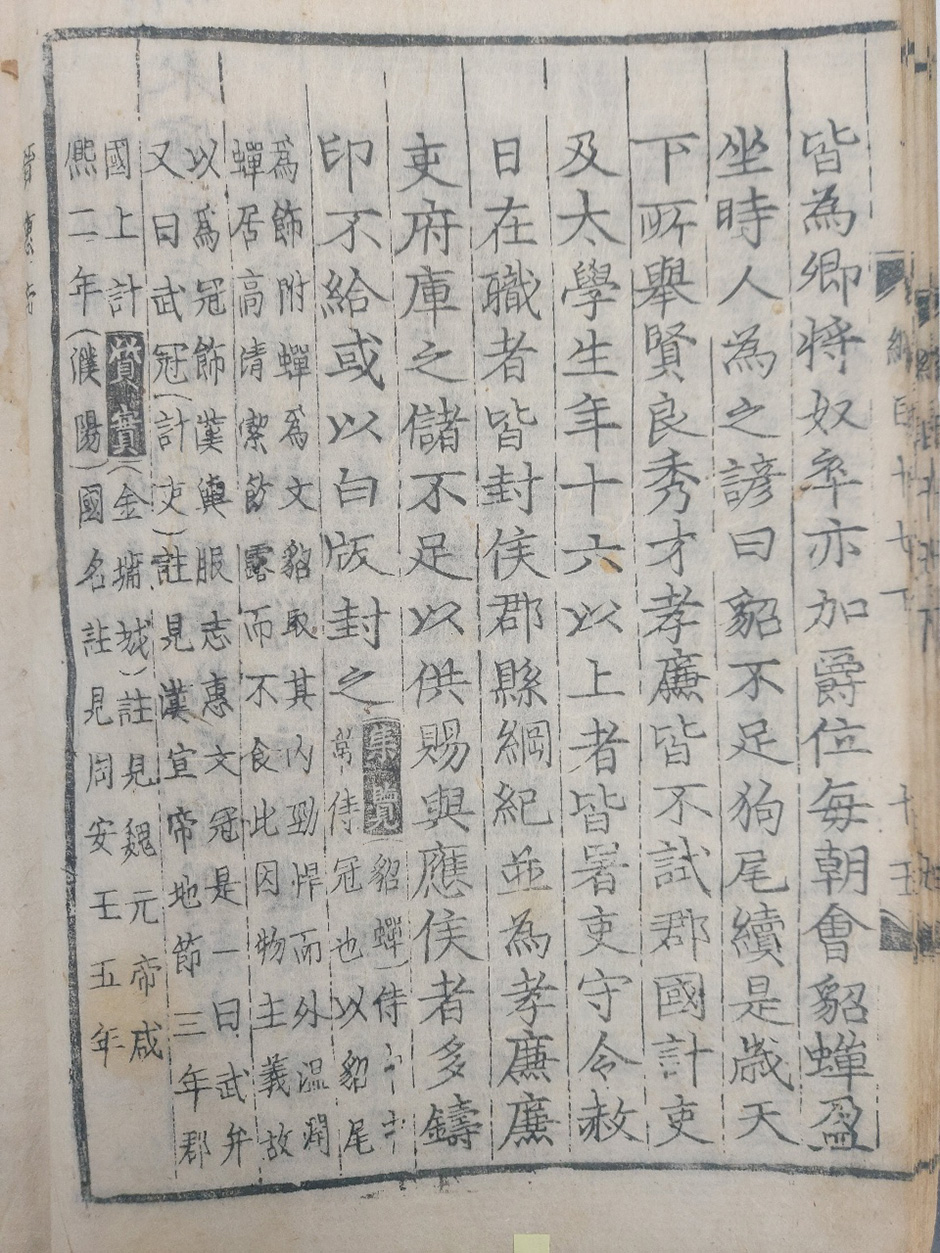 皆為卿將奴卒亦加爵位每朝會貂蟬盈
坐時人為之諺曰貂不足狗尾續是歲天
下所舉賢良秀才孝廉皆不試郡國計吏
及太學生年十六以上者皆署吏守令赦
日在職者皆封侯郡縣綱紀並為孝廉廉
吏府庫之儲不足以供賜與應侯者多鑄
印不給或以白版封之
集覽(貂蟬)侍中
常侍冠也以貂尾
為飾附蟬為文貂取其內勁悍而外溫潤
蟬居高清潔飲露而不食此因物主義故
以為冠飾漢輿服志惠文冠是一曰武弁
又曰武冠(計吏)註見漢宣帝地節三年郡
國上計
質實(金墉城)註見魏元帝咸
熙二年(濮陽)國名註見周安王五年